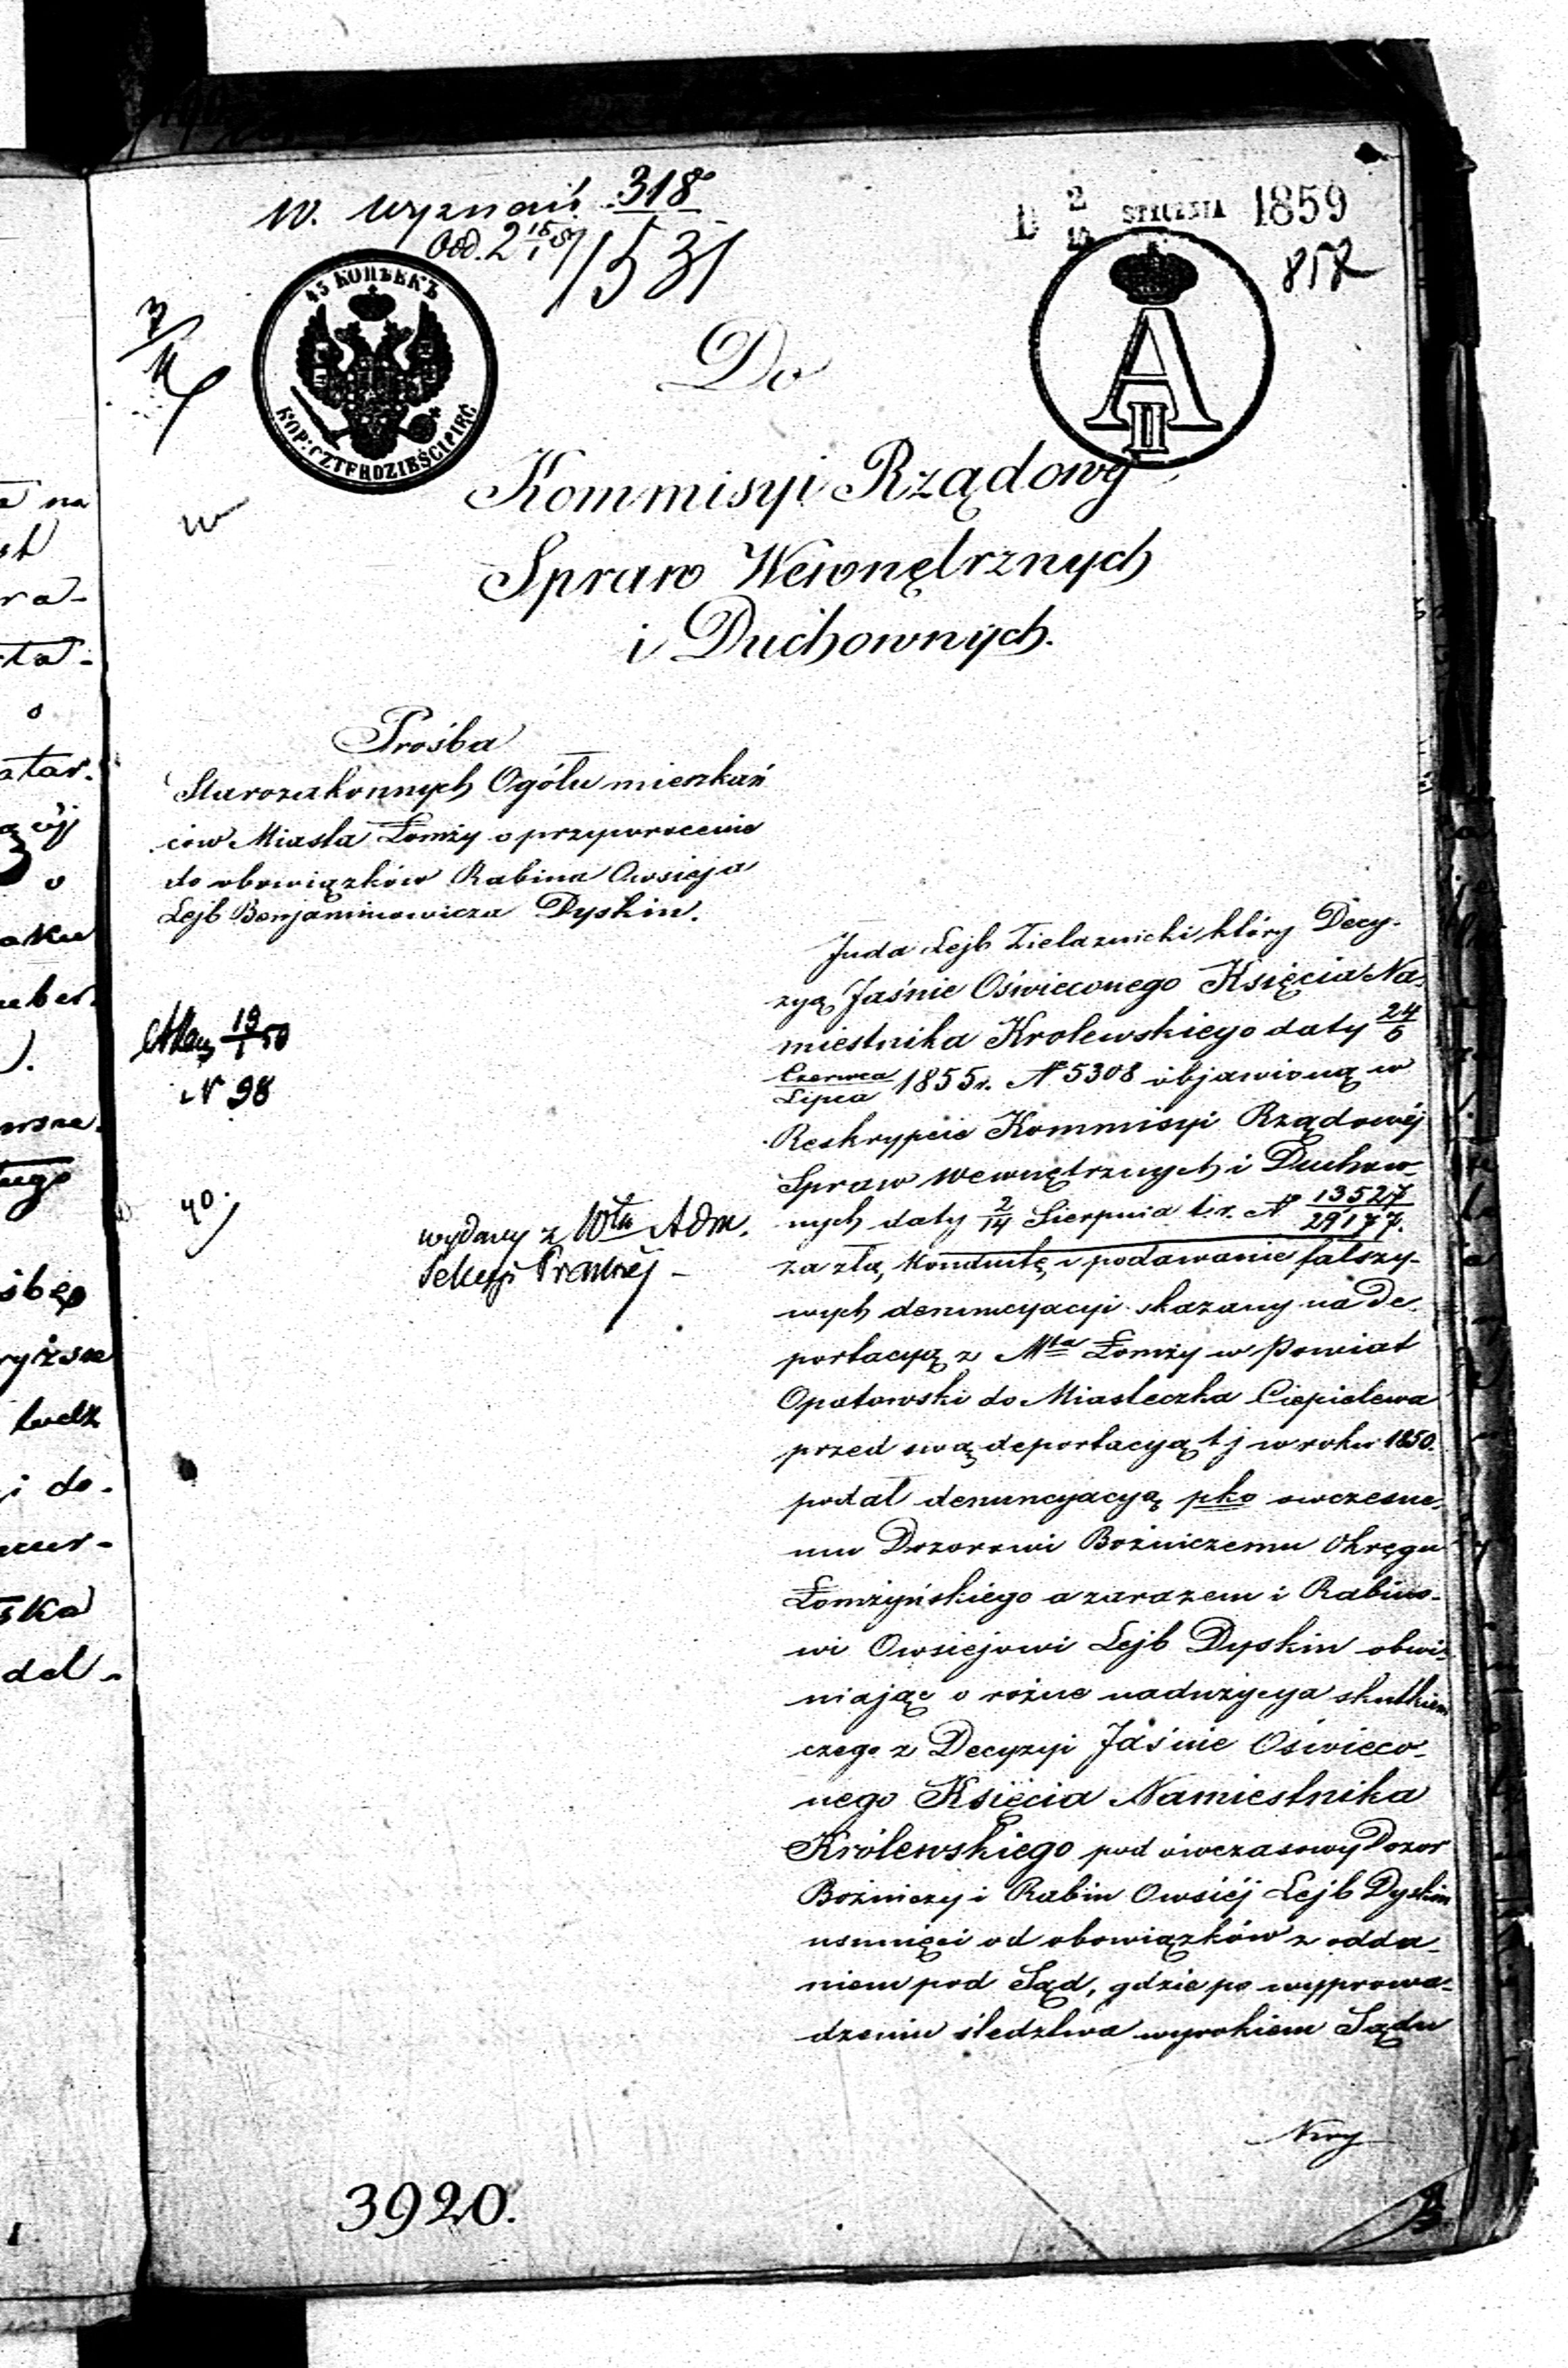 W. wyznań 318
Odd. 2
1531
D 2 STYCZNIA 1859
857
45 КОПѢЕКЪ
KOP: CZTERDZIEŚCI PIĘĆ
A II
Do
Kommisyi Rządowej
Spraw Wewnętrznych
i Duchownych.
Prośba
Starozakonnych Ogółu mieszkań
ców Miasta Łomży o przywrócenie
do obowiązków Rabina Owsieja
Lejb Benjaminowicza Dyskin.
N 98
wydany z Włu Adm.
Sekcyi Prawnej –
Juda Lejb Zielaznicki który Decy-
zyą Jaśnie Oświeconego Księcia Na-
miestnika Krolewskiego daty 24/6
Czerwca/Lipca 1855 r. N 5308 objawioną w
Reskrypcie Kommisyi Rządowéj
Spraw Wewnętrznych i Duchow-
nych daty 2/14 Sierpnia t.r. N 13527/29177.
za złą konduitę i podawanie fałszy-
wych denuncyacyi skazany na De-
portacyą z Mta Łomży w Powiat
Opatowski do Miasteczka Ciepielewa
przed swą deportacyą tj w roku 1850.
podał denuncyacyą pko owczesne-
mu Dozorowi Bożniczemu Okręgu
Łomżyńskiego a zarazem i Rabino-
wi Owsiejowi Lejb Dyskin obwi-
niając o rożne nadużycya skutkiem
czego z Decyzyi Jaśnie Oświeco-
nego Księcia Namiestnika
Królewskiego pod ówczasowy Dozor
Bożniczy i Rabin Owsiéj Lejb Dyskin
usunięci od obowiązków z odda-
niem pod Sąd, gdzie po wyprowa-
dzeniu śledztwa wyrokiem Sądu
3920.